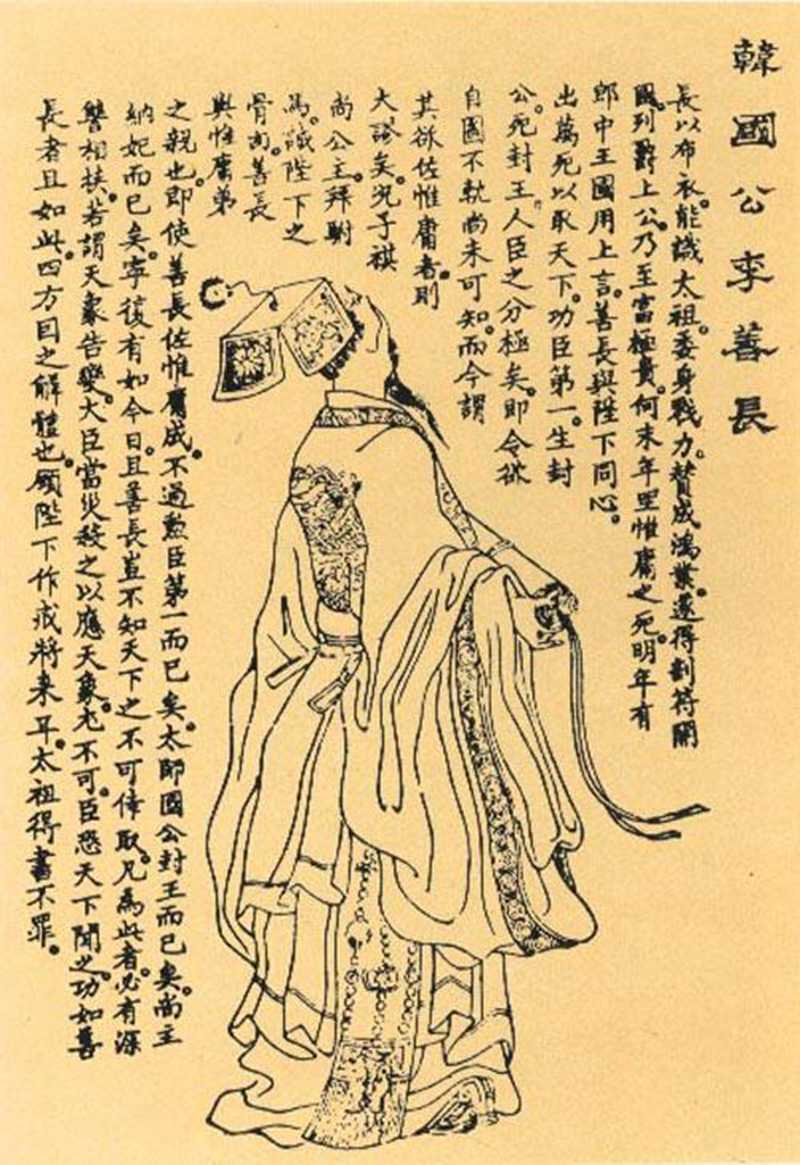 韓國公李善長
長以布衣。能識太祖。委身戮力。贊成鴻業。遂得剖符開
國。列爵上公。乃至富極貴。何末年里惟庸之死。明年有
郎中王國用上言。善長與陛下同心。
出萬死以取天下。功臣第一。生封
公。死封王。人臣之分極矣。即令欲
自圖不軌尚未可知。而今謂
其欲佐惟庸者。則
大謬矣。況子祺
尚公主。拜駙
馬。誠陛下之
骨肉。善長
與惟庸弟
之親也。即使善長佐惟庸成。不過勲臣第一而已矣。太師國公封王而已矣。尚主
納妃而已矣。寧復有如今日。且善長豈不知天下之不可倖取。凡為此者。必有深
讐相挾。若謂天象告變。大臣當災。殺之以應天象。尤不可。臣恐天下聞之。功如善
長者且如此。四方因之解體也。願陛下作戒將来耳。太祖得書不罪。